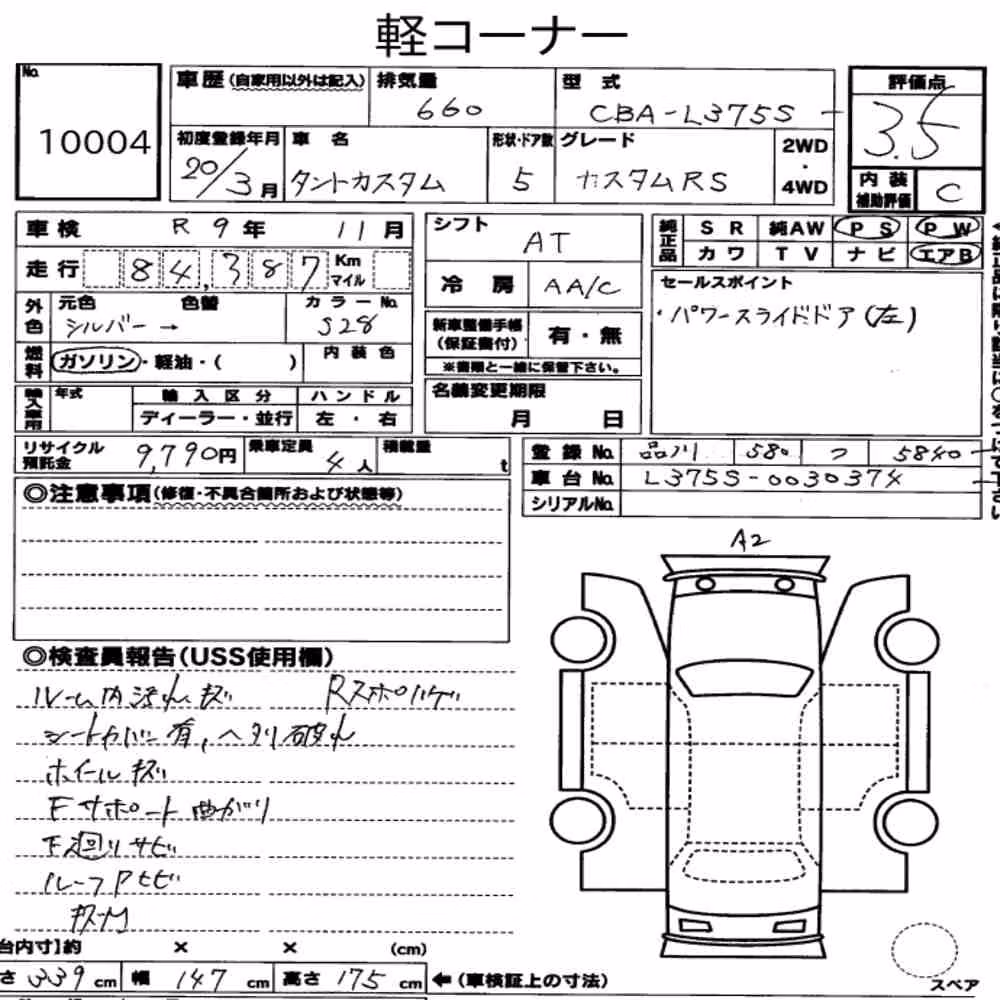 軽コーナー
No. 10004
車歴(自家用以外は記入)
排気量 660
型式 CBA-L375S
評価点 3.5
初度登録年月 20/3月
車名 タントカスタム
形状・ドア数 5
グレード カスタムRS
2WD・4WD
内装補助評価 C
車検 R 9年 11月
走行 84,387 Km マイル
外色 元色 シルバー → 色替 カラーNo. S28
燃料 ガソリン・軽油・( ) 内装色
輸入車用 年式 輸入区分 ハンドル
ディーラー・並行 左・右
シフト AT
冷房 AA/C
新車整備手帳(保証書付) 有・無
※書類と一緒に保管下さい。
名義変更期限 月 日
純正品 SR 純AW PS PW
カワ TV ナビ エアB
セールスポイント
・パワースライドドア(左)
リサイクル預託金 9,790円 乗車定員 4人 積載量 t
登録No. 品川 580 つ 5840
車台No. L375S-0030374
シリアルNo.
◎注意事項(修復・不具合箇所および状態等)
A2
◎検査員報告(USS使用欄)
ルーム内汚れキズ Rスポハゲ
シートカバー有,ヘタリ破れ
ホイールキズ
Fサポート曲がり
下廻りサビ
ルーフPセビ
台内寸】約 × × (cm)
さ 339cm 幅 147cm 高さ 175cm ←(車検証上の寸法)
スペア